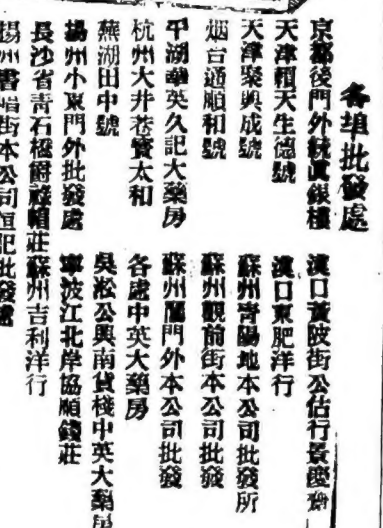 各埠批發處
京都後門外統眞銀樓
漢口黃陂街公估行景慶
天津賴天生德號
漢口東肥洋行
天津聚興成號
蘇州靑陽地本公司批發所
烟台通順和號
蘇州觀前街本公司批發
平湖華英久記大藥房
蘇州閶門外本公司批發
杭州大井巷寶太和
各處中英大藥房
蕪湖田中號
吳淞公興南貨棧中英大藥房
揚州小東門外批發處
寧波江北岸協順錢莊
長沙省靑石橋爵祿帽莊
蘇州吉利洋行
揚州 街本公司恒記批發處